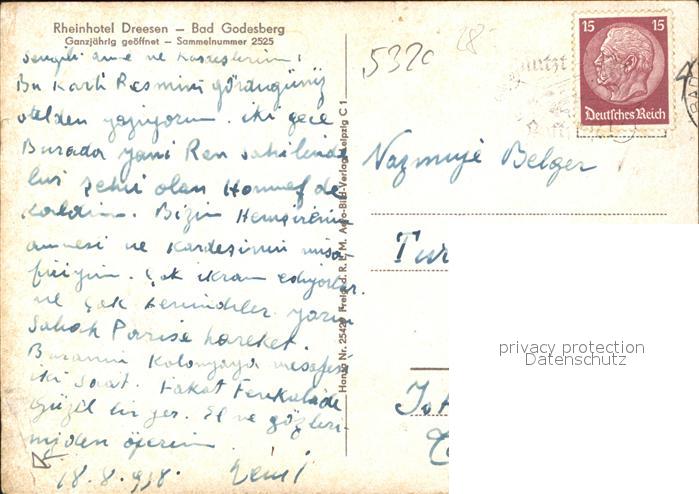 Rheinhotel Dreesen — Bad Godesberg
Ganzjährig geöffnet — Sammelnummer 2525
sevgili anne ve kardeşlerim,
Bu kartı Resmini gördüğünüz
otelden yazıyorum. iki gece
Burada yani Ren sahilinde
bir şehir olan Honnef de
kaldım. Bizim Hemşirenin
annesi ve kardeşinin misa
firiyim. çok ikram ediyorlar
ve çok sevindiler yarın
Sabah Parise hareket.
Buranın Kolonyaya mesafesi
iki saat. Fakat Fevkalâde
güzel bir yer. El ve gözleri-
nizden öperim
18.8.938
5320
Nazmiye Belger
Tur
15 15
Deutsches Reich
privacy protection
Datenschutz